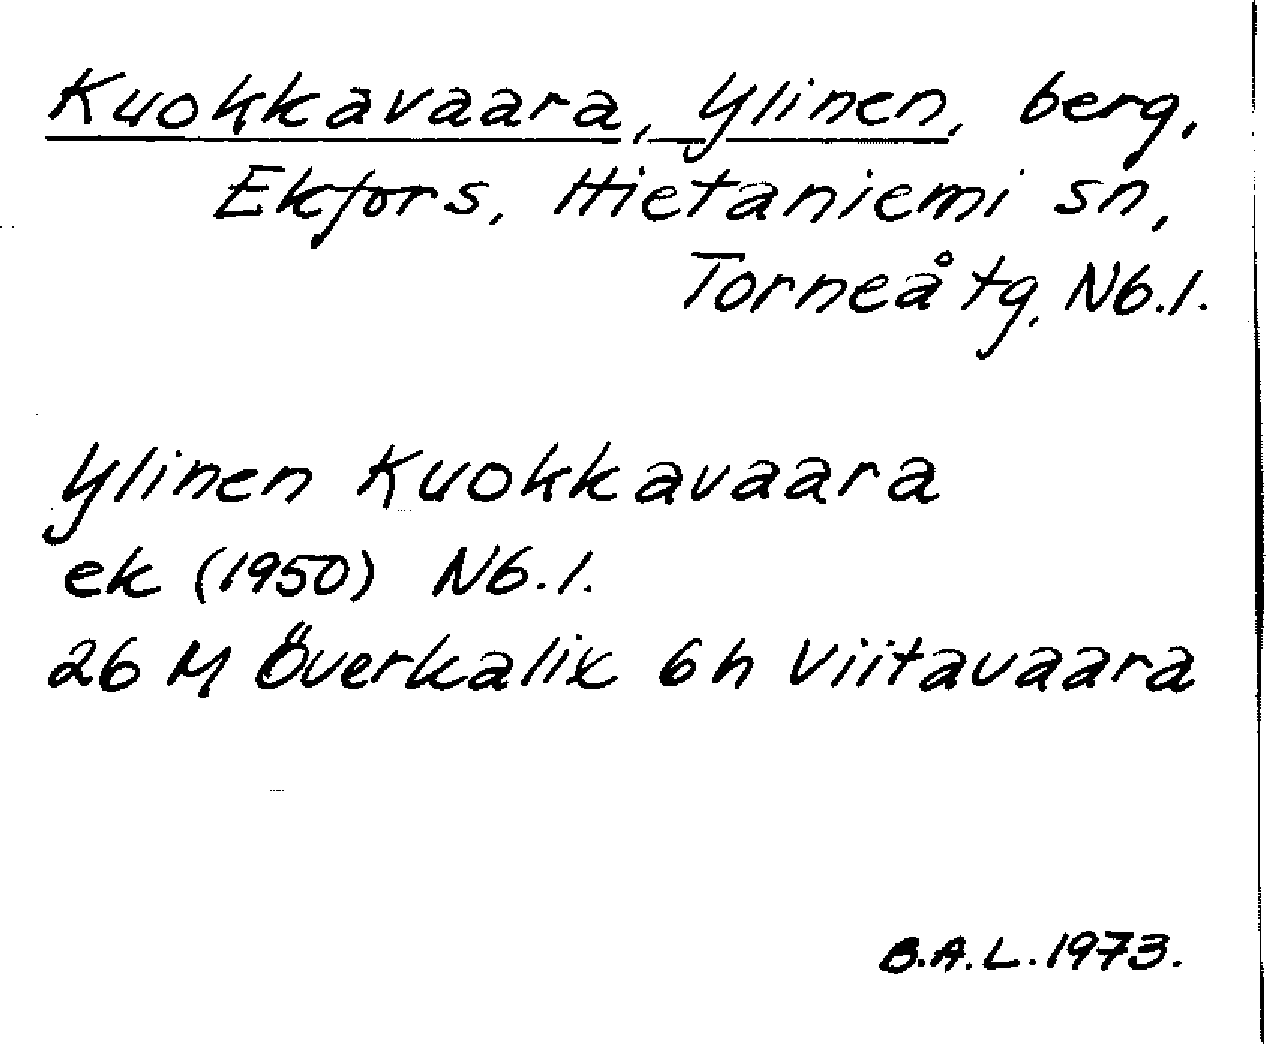 Kuokkavaara, Ylinen, berg,
Ekfors, Hietaniemi sn,
Torneå tg, Nb.l.
Ylinen Kuokkavaara
ek (1950) Nb.l.
26 M Överkalix 6h Viitavaara
B.A.L. 1973.